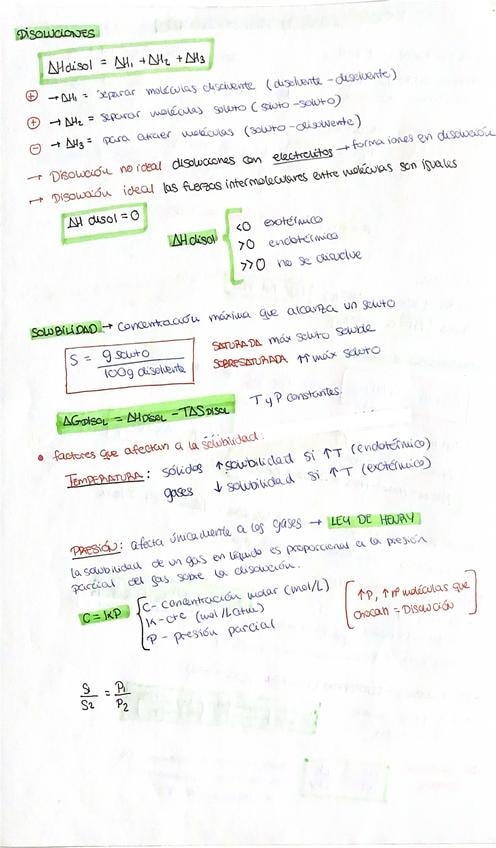 DISOLUCIONES
ΔHdisol = ΔH₁ + ΔH₂ + ΔH₃
⊕ → ΔH₁ = separar moléculas disolvente (disolvente - disolvente)
⊕ → ΔH₂ = separar moléculas soluto (soluto - soluto)
⊖ → ΔH₃ = para atraer moléculas (soluto - disolvente)
→ Disolución no ideal disoluciones con electrolitos → forma iones en disolución
→ Disolución ideal las fuerzas intermoleculares entre moléculas son iguales
ΔH disol = 0
ΔHdisol { <0 exotérmico
>0 endotérmico
>>0 no se disuelve
SOLUBILIDAD → Concentración máxima que alcanza un soluto
S = g soluto / 100g disolvente
SATURADA máx soluto soluble
SOBRESATURADA ↑↑ máx soluto
ΔGDISOL = ΔHDISOL - TΔSDISOL T y P constantes.
• factores que afectan a la solubilidad:
TEMPERATURA: sólidos ↑ solubilidad si ↑T (endotérmico)
gases ↓ solubilidad si ↑T (exotérmico)
PRESIÓN: afecta únicamente a los gases → LEY DE HENRY
la solubilidad de un gas en líquido es proporcional a la presión
parcial del gas sobre la disolución.
C = KP { C - concentración molar (mol/L)
K - cte (mol/L atm)
P - presión parcial
[↑P, ↑nº moléculas que
chocan = Disolución]
S₁/S₂ = P₁/P₂